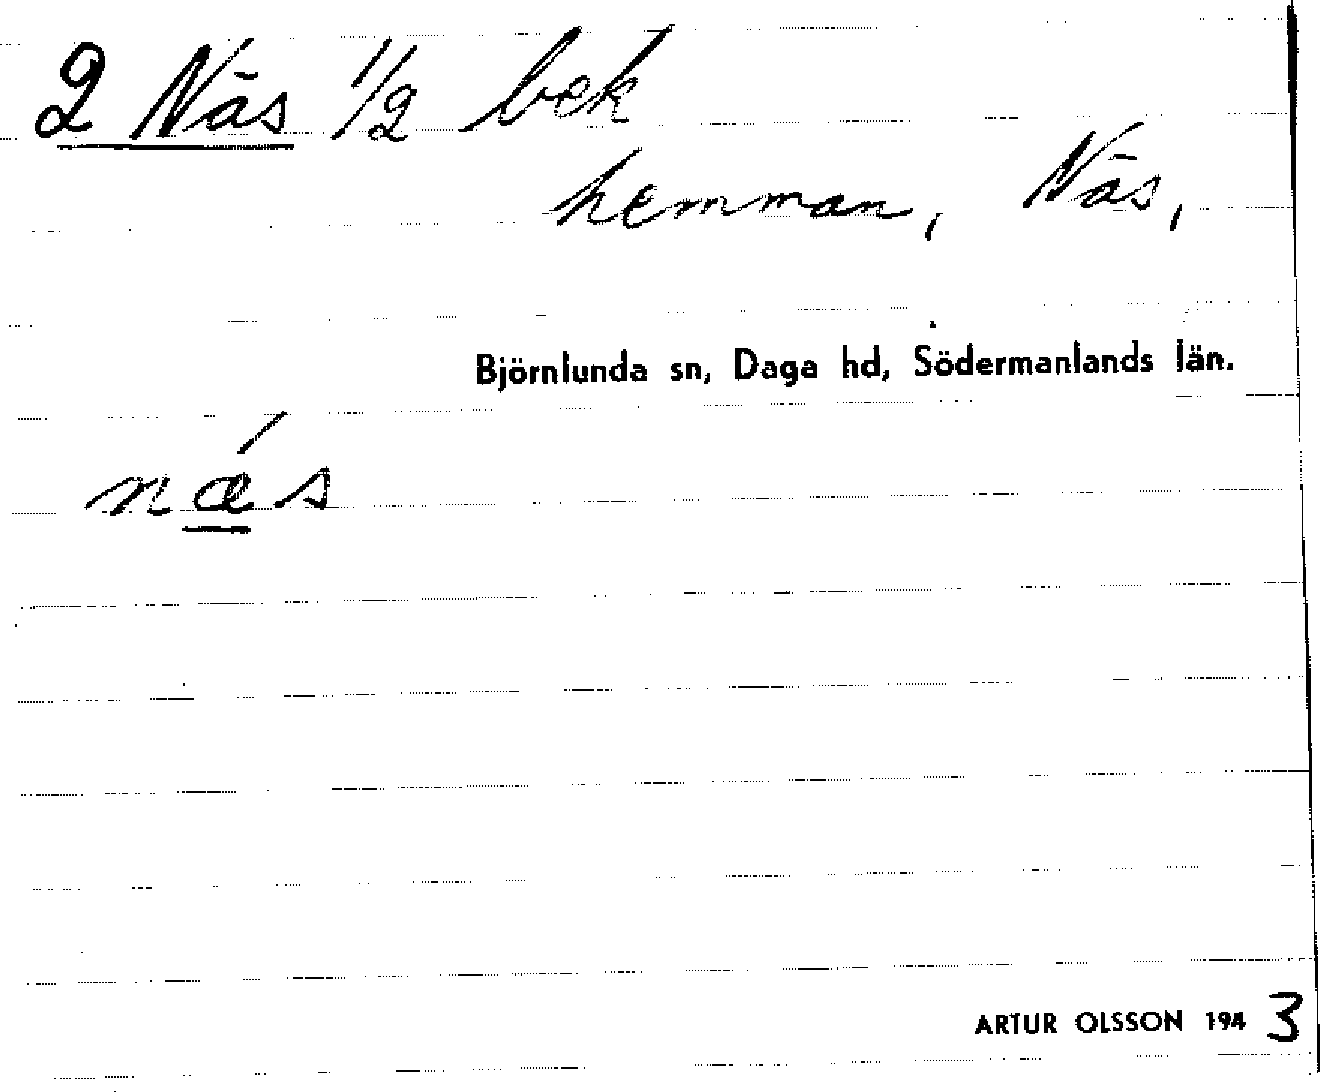 2 Näs 1/2 bek
hemman, Näs,
Björnlunda sn, Daga hd, Södermanlands län.
næ´s
ARTUR OLSSON 1943